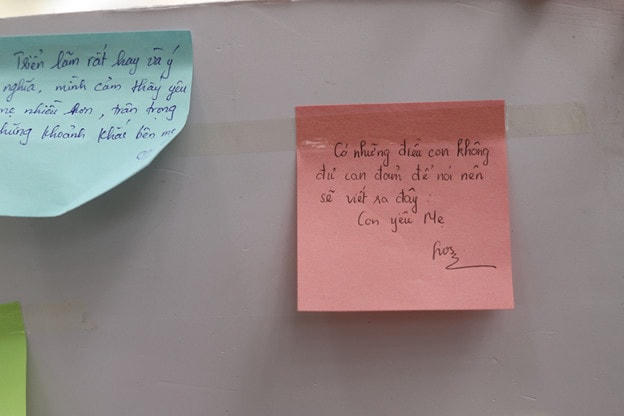 Triển lãm rất hay và ý
nghĩa, mình cảm thấy yêu
mẹ nhiều hơn, trân trọng
những khoảnh khắc bên mẹ
Có những điều con không
đủ can đảm để nói nên
sẽ viết ra đây :
Con yêu Mẹ